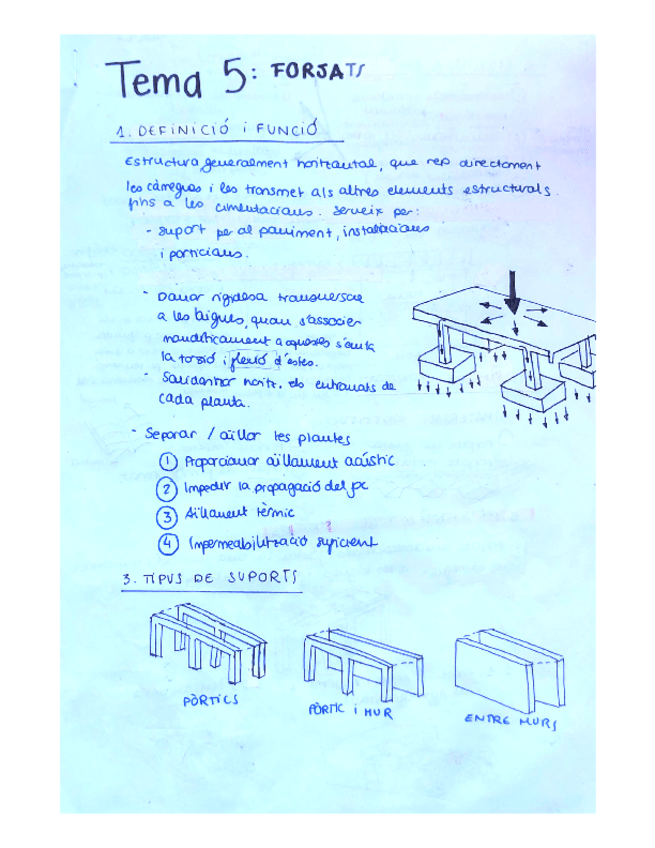 Tema 5: FORJATS
1. DEFINICIÓ i FUNCIÓ
Estructura generalment horitzontal, que rep directament
les càrregues i les transmet als altres elements estructurals
fins a les cimentacions. Serveix per:
- suport per al paviment, instal·lacions
i particions.
- Donar rigidesa transversal
a les bigues, quan s'associen
monolíticament a aquestes s'evita
la torsió i flexió d'estes.
- Solidaritzar horitz. els entramats de
cada planta.
- Separar / aïllar les plantes
1 Proporcionar aïllament acústic
2 Impedir la propagació del foc
3 Aïllament tèrmic
4 Impermeabilització suficient
3. TIPUS DE SUPORTS
PÒRTICS
PÒRTIC i MUR
ENTRE MURS